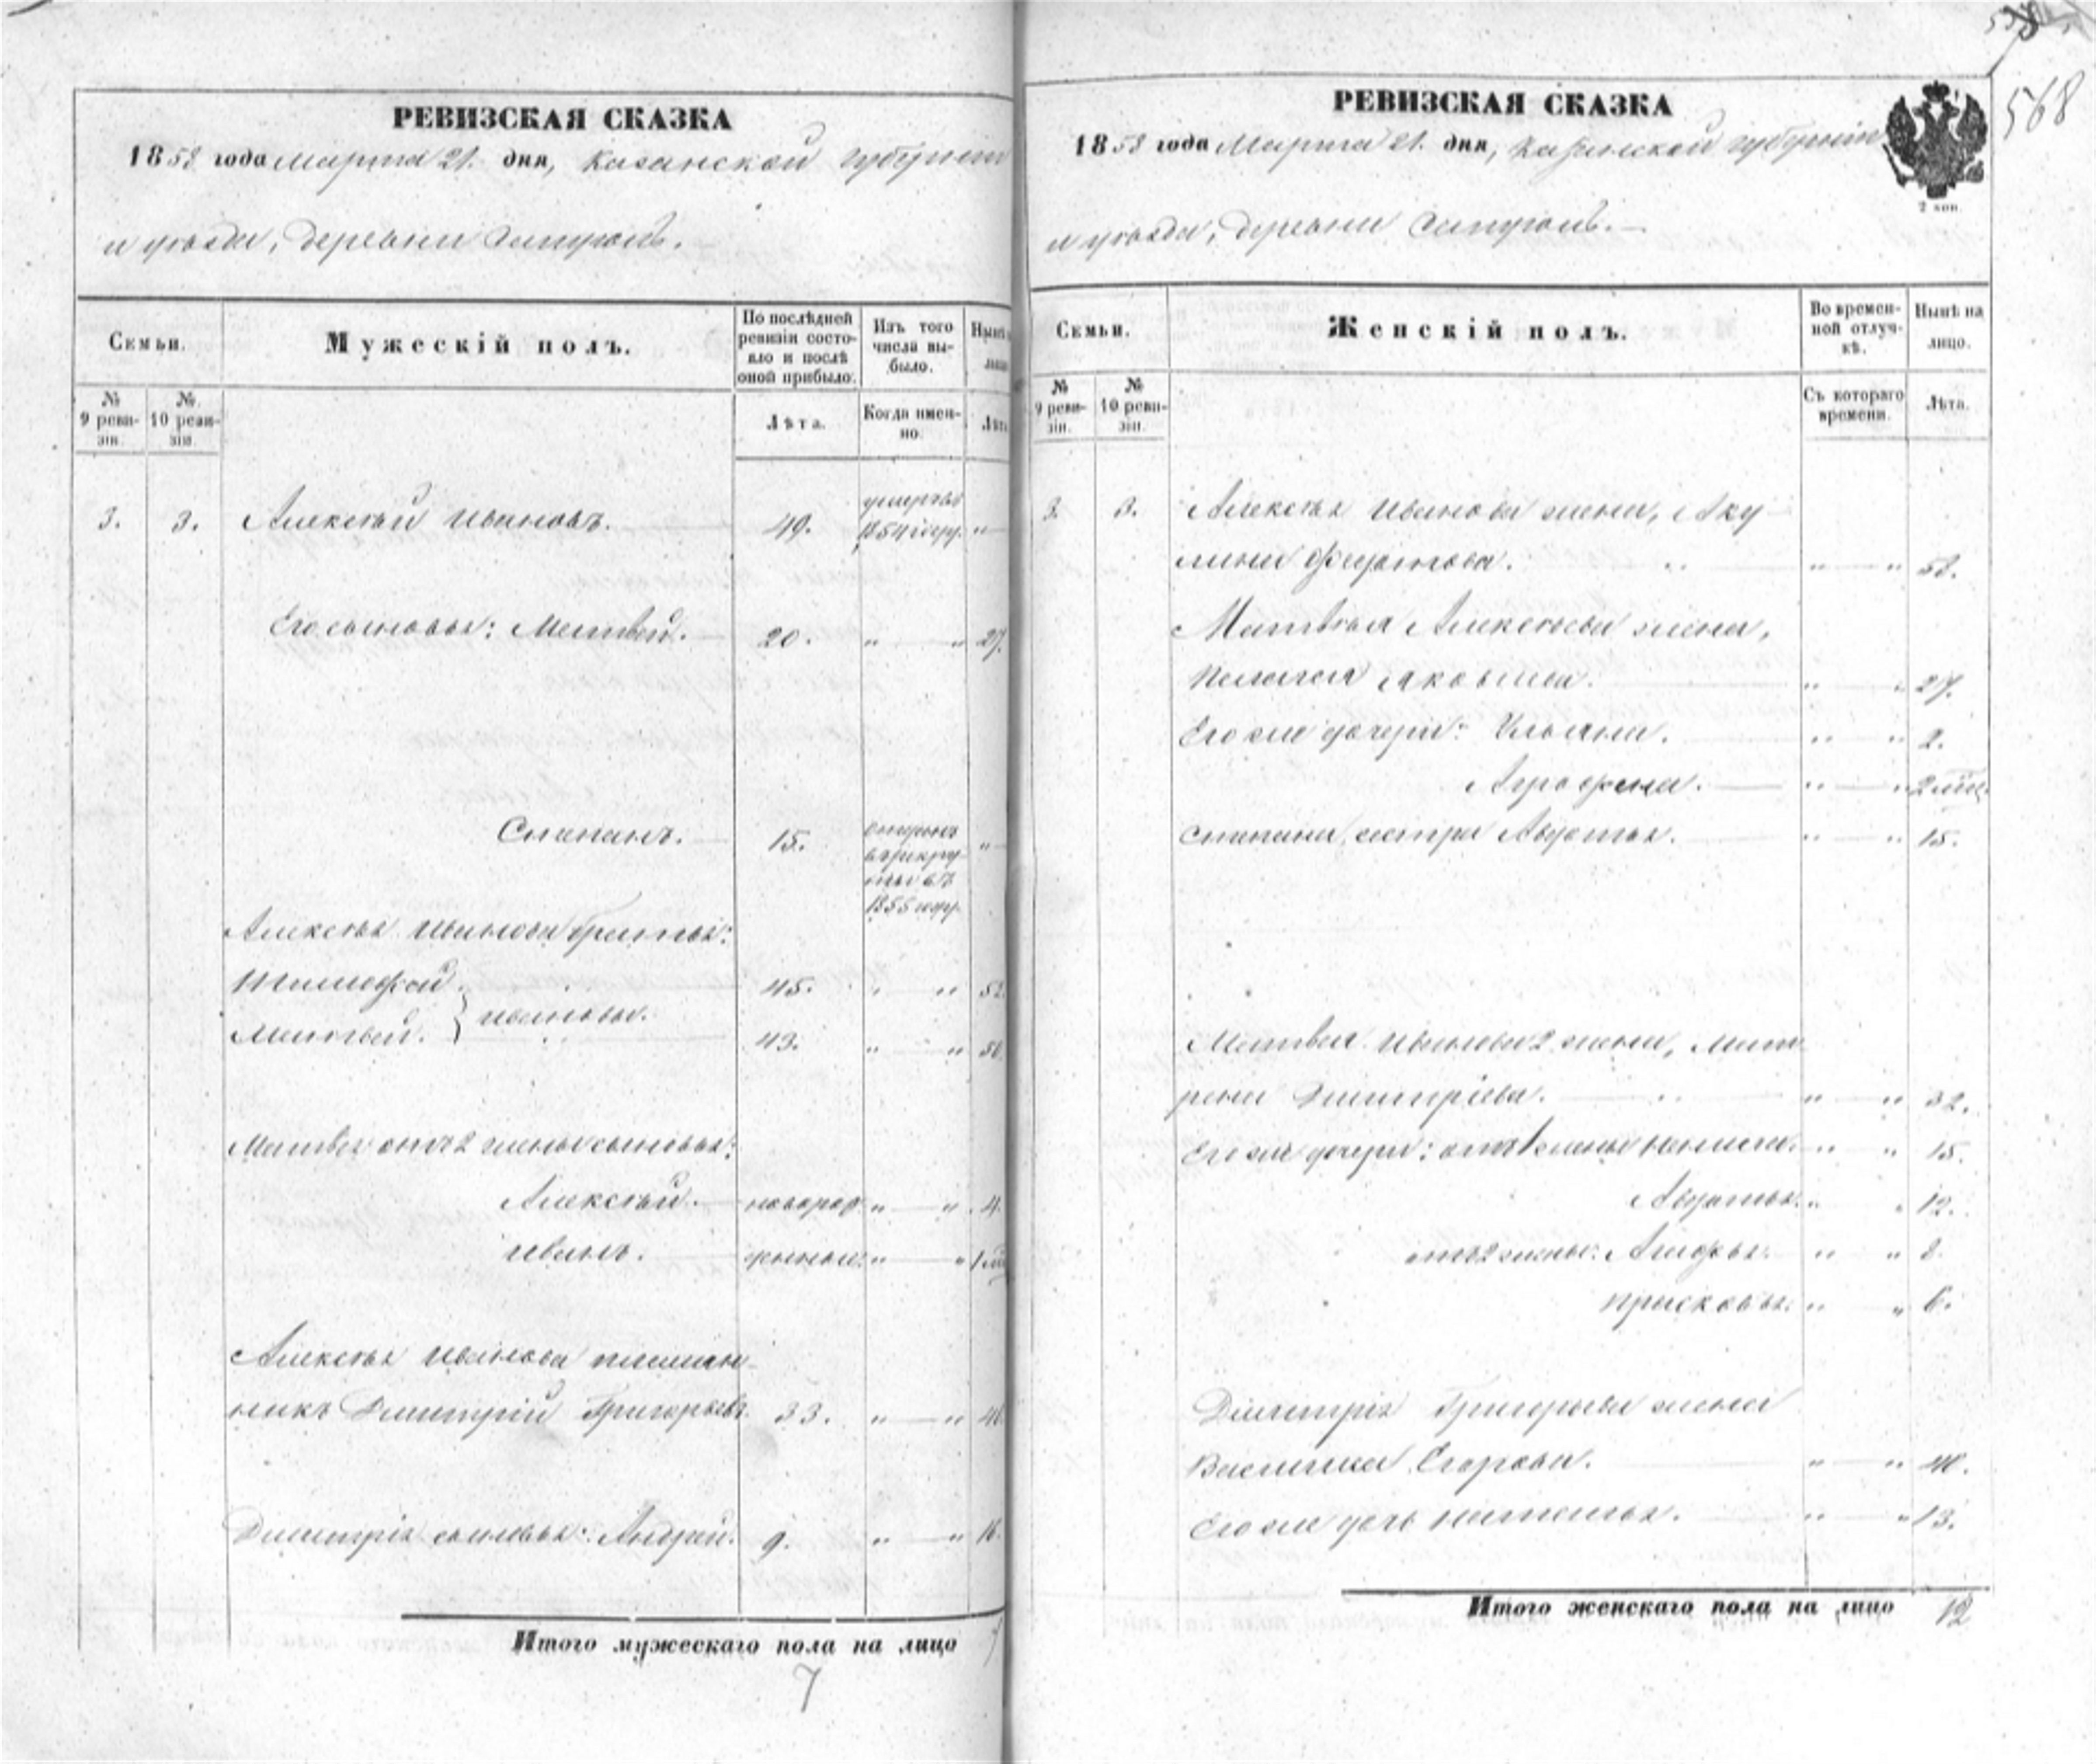 568
РЕВИЗСКАЯ СКАЗКА
1858 года Марта 21. дня, Казанской губернiи
и уѣзда, деревни
Семьи.
Мужескiй полъ.
По послѣдней ревизiи состояло и послѣ оной прибыло.
Изъ того числа выбыло.
Нынѣ
№ 9 ревизiи.
№ 10 ревизiи.
Лѣта.
Когда именно.
Лѣта
3. 3. Алексѣй Ивановъ. 49. умеръ въ 1854 году. „
Его сыновья: Матвей. 20. „ „ 27.
Степанъ. 15. отданъ въ рекруты въ 1855 году. „
Алексѣя Иванова братья:
Тимофей. 45. „ „ 52.
Матвей. } Ивановы. 43. „ „ 50.
Матвея отъ 2 жены сыновья:
Алексѣй. новорож „ „ 4.
Иванъ. денные: „ „ 1
Алексѣя Иванова племян
никъ Дмитрiй Григорьевъ. 33. „ „ 40.
Дмитрiя сыновья: Андрей. 9. „ „ 16.
Итого мужескаго пола на лицо 7
7
РЕВИЗСКАЯ СКАЗКА
1858 года Марта 21. дня, Казанской губернiи
2 коп.
и уѣзда, деревни
Семьи.
Женскiй полъ.
Во временной отлучкѣ.
Нынѣ на лицо.
№ 9 ревизiи.
№ 10 ревизiи.
Съ котораго времени.
Лѣта.
3. 3. Алексѣя Иванова жена, Аку
лина „ „ 58.
Матвѣя Алексѣева жена,
Пелагея Яковлева. „ „ 27.
Его же дочери: Ульяна. „ „ 2.
Аграфена. „ „ 2 мѣс.
Степана, сестра Авдотья. „ „ 15.
Матвея Иванова 2 жена, Мат
рена Дмитрiева. „ „ 32.
Его же дочери: отъ 1 жены „ „ 15.
Авдотья. „ „ 12.
отъ 2 жены: „ „ 8.
Прасковья: „ „ 6.
Дмитрiя Григорьева жена
Василиса Егорова. „ „ 40.
Его же дочь Наталья. „ „ 13.
Итого женскаго пола на лицо 12